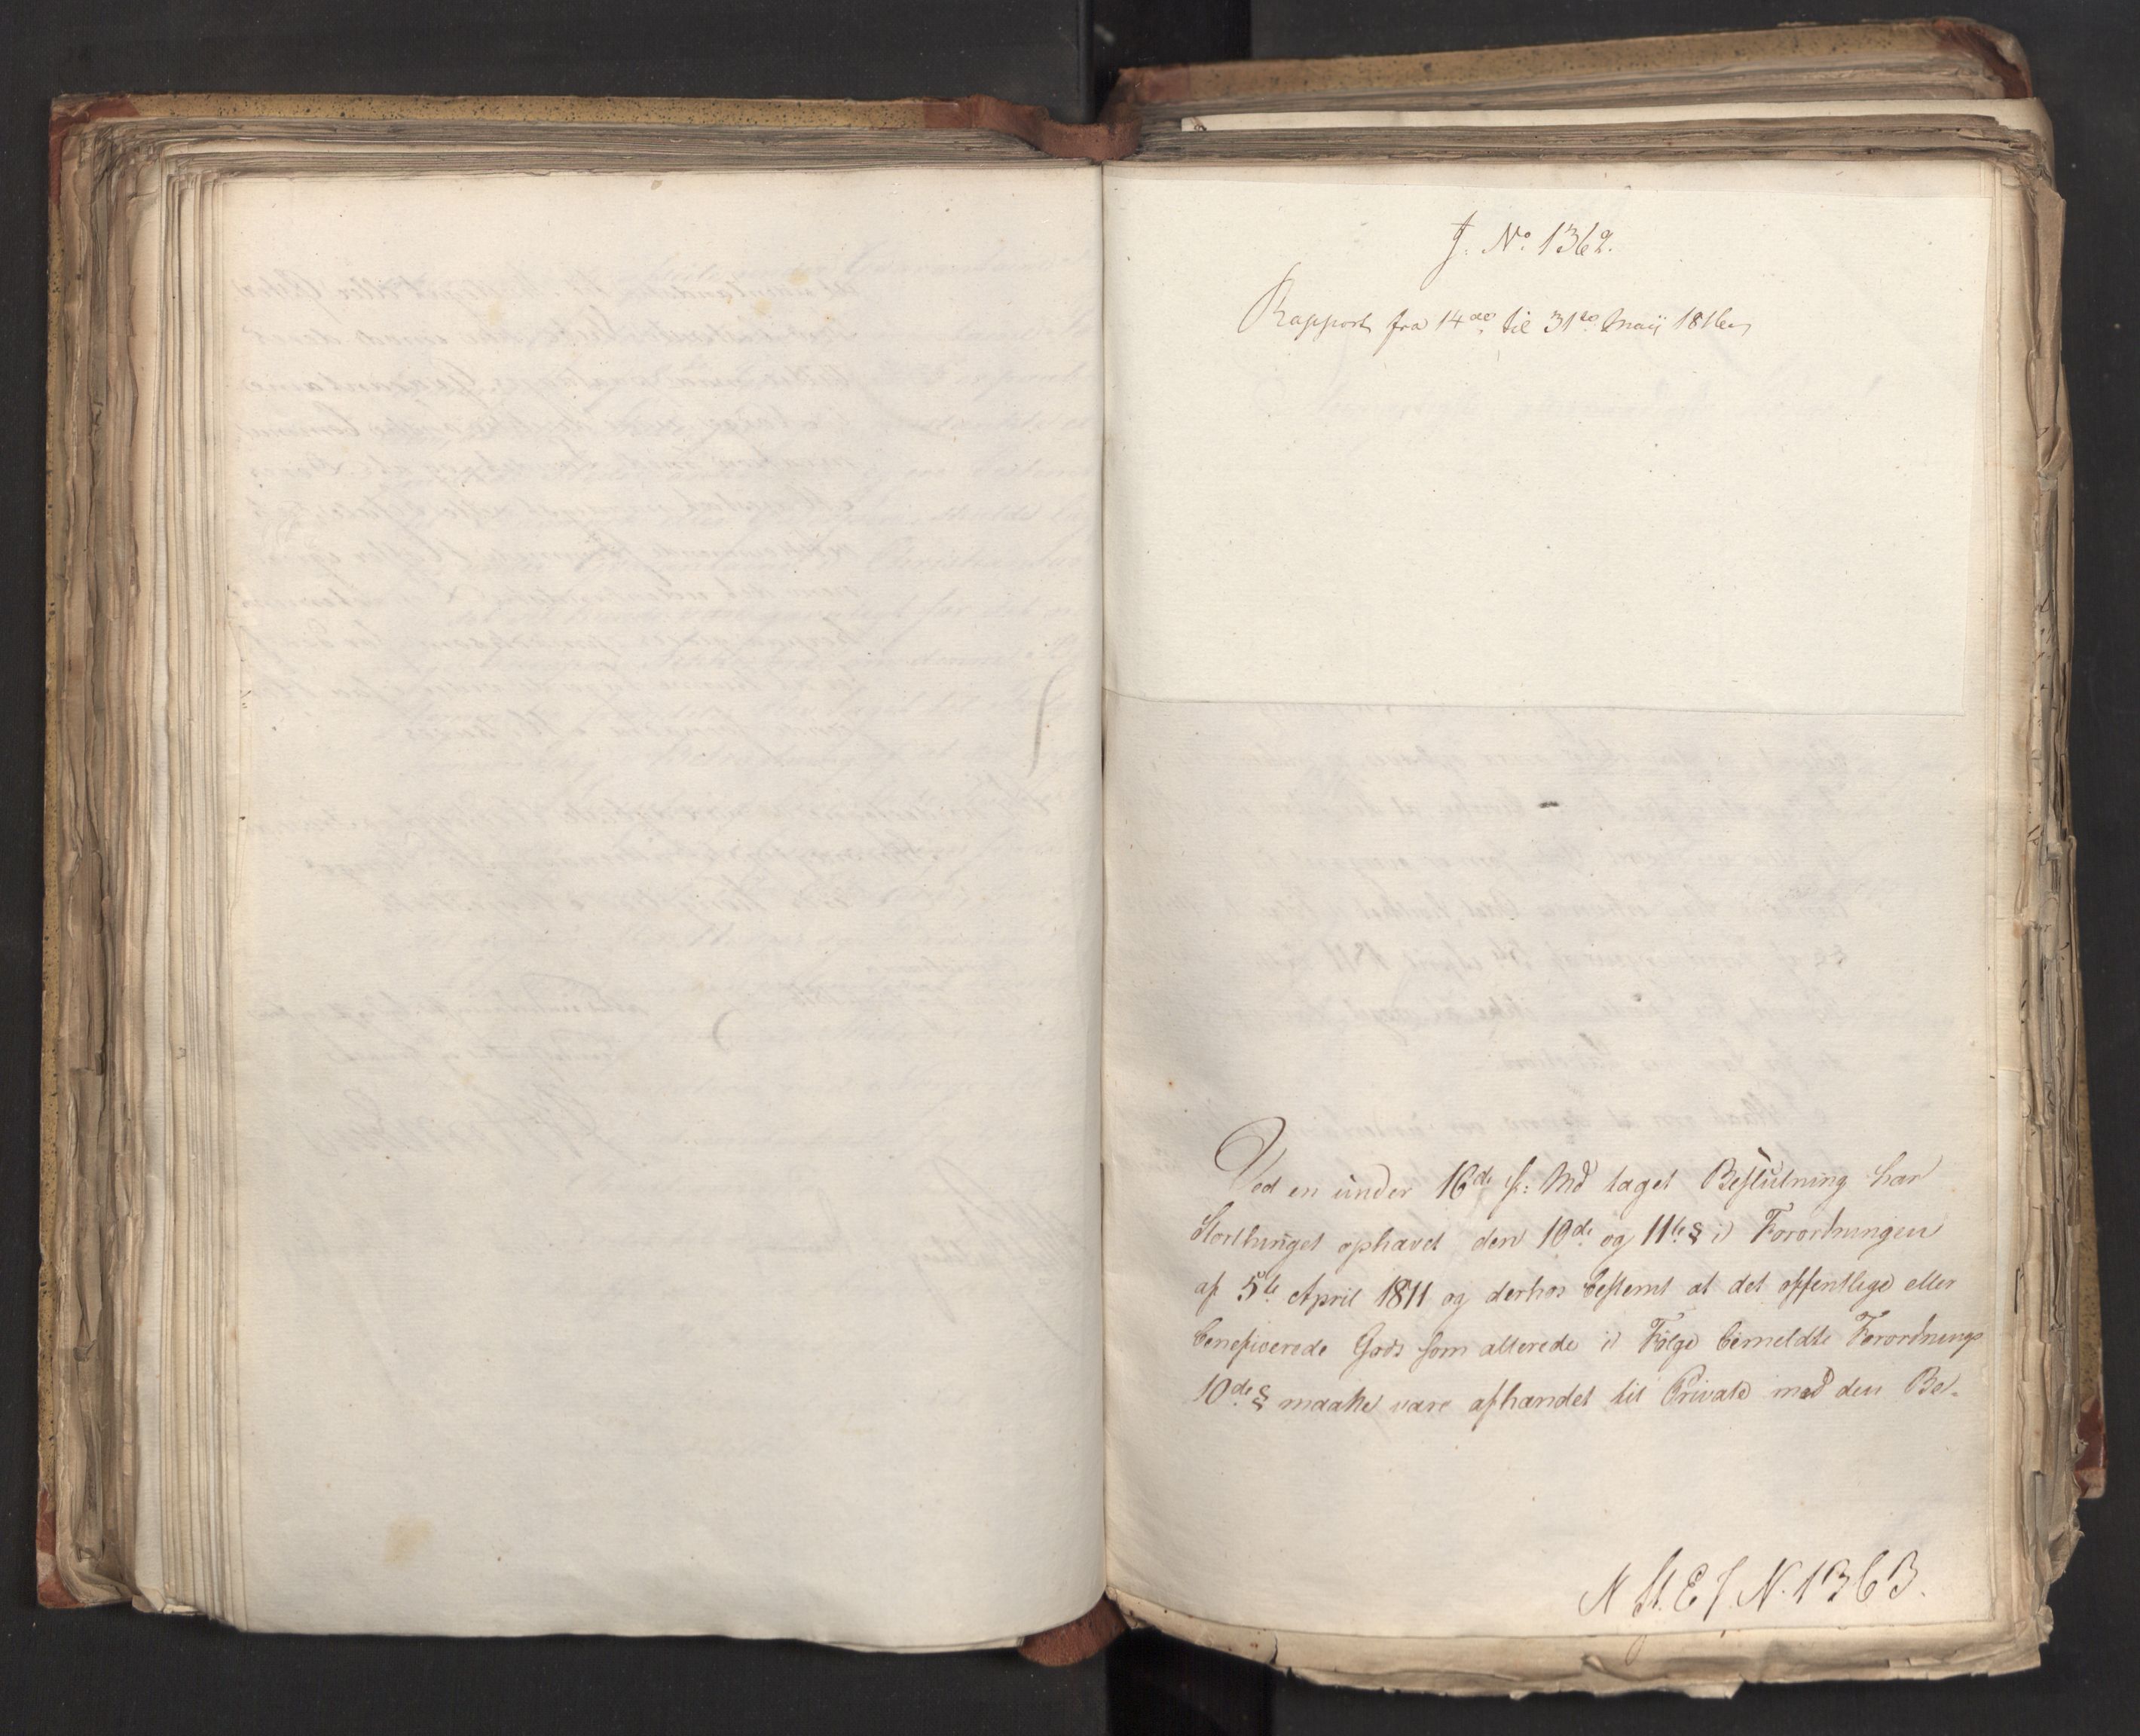 J. No 1362.
Rapport fra 14de til 31te Maii 1816
Ved en under 16de f: Md taget Beslutning har
Storthinget ophævet den 10de og 11te § i Forordningen
af 5te April 1811 og derhos bestemt at det offentlige eller
beneficerede Gods som allerede i Følge bemeldte Forordnings
10de § maatte være afhændet til Private med den Be-
N St. E J. N. 1363.